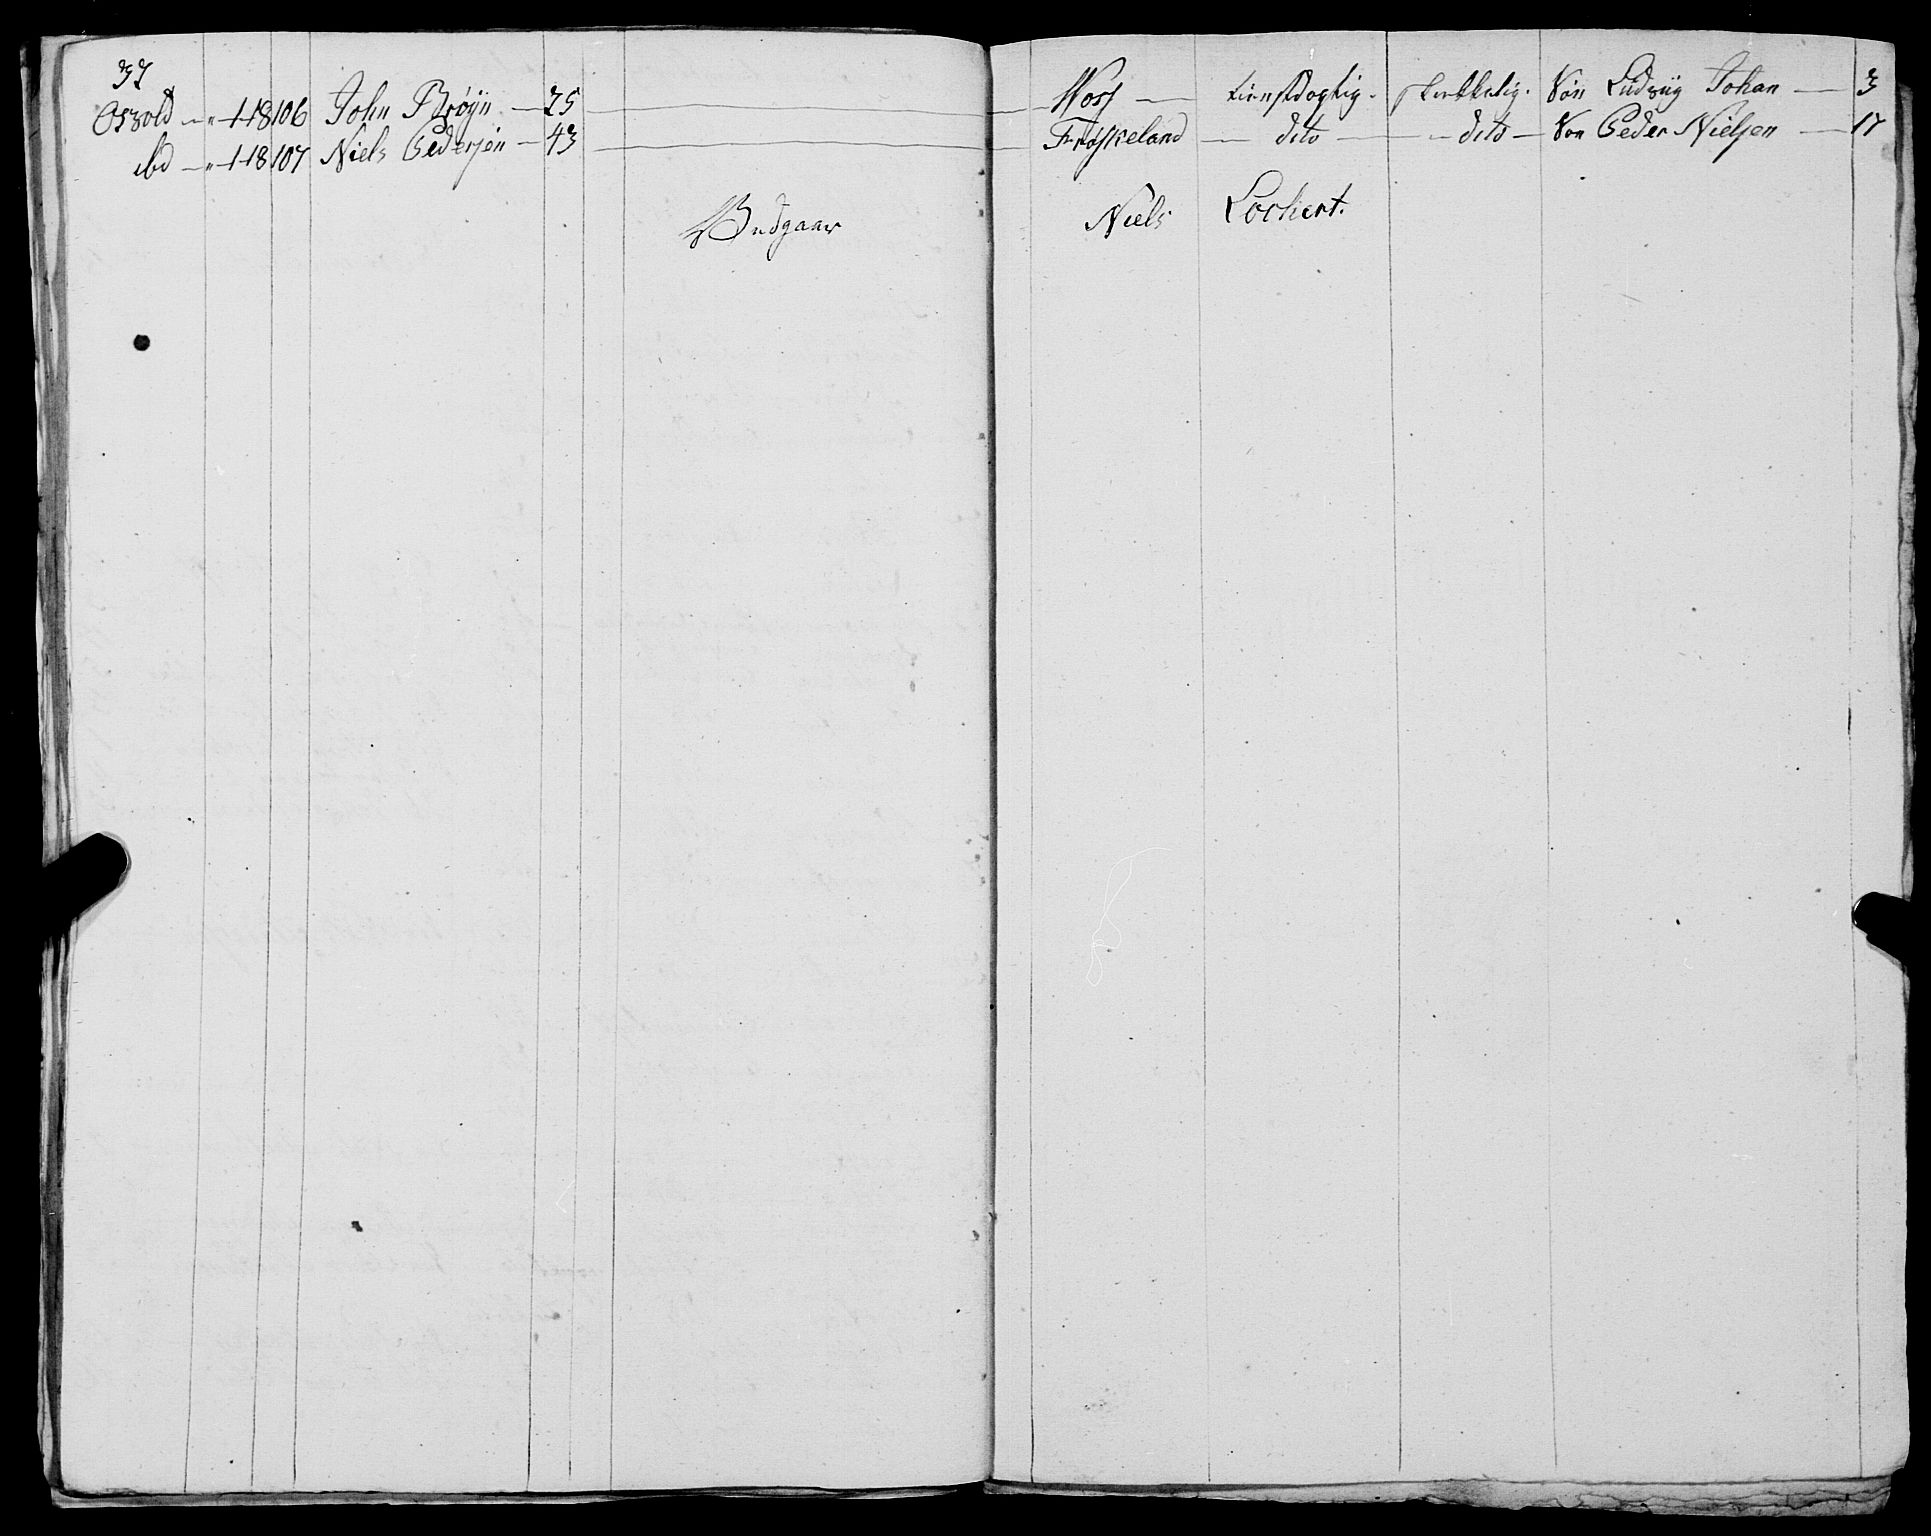 37
Osvold — " 118 106 John Brøyn — 25 — Woss — tienstdygtig. skikkelig. Søn Ludvig Johan — 3
ibd — " 118 107 Niels Pedersen — 43 — Frøskeland — dito — dito — Søn Peder Nielsen — 17
Niels Lockert.